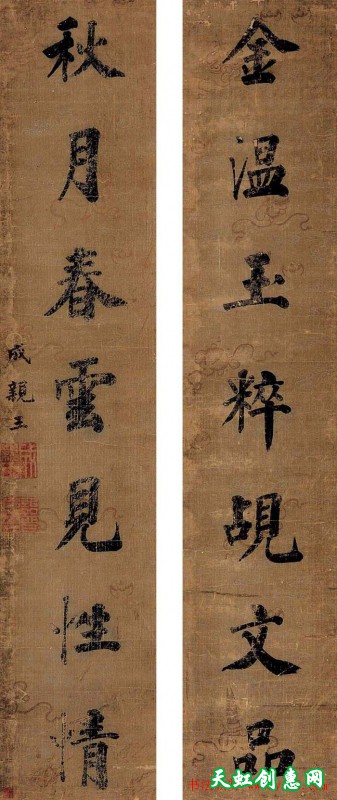 金温玉粹覘文品
秋月春雲見性情
成親王
天虹创惠网